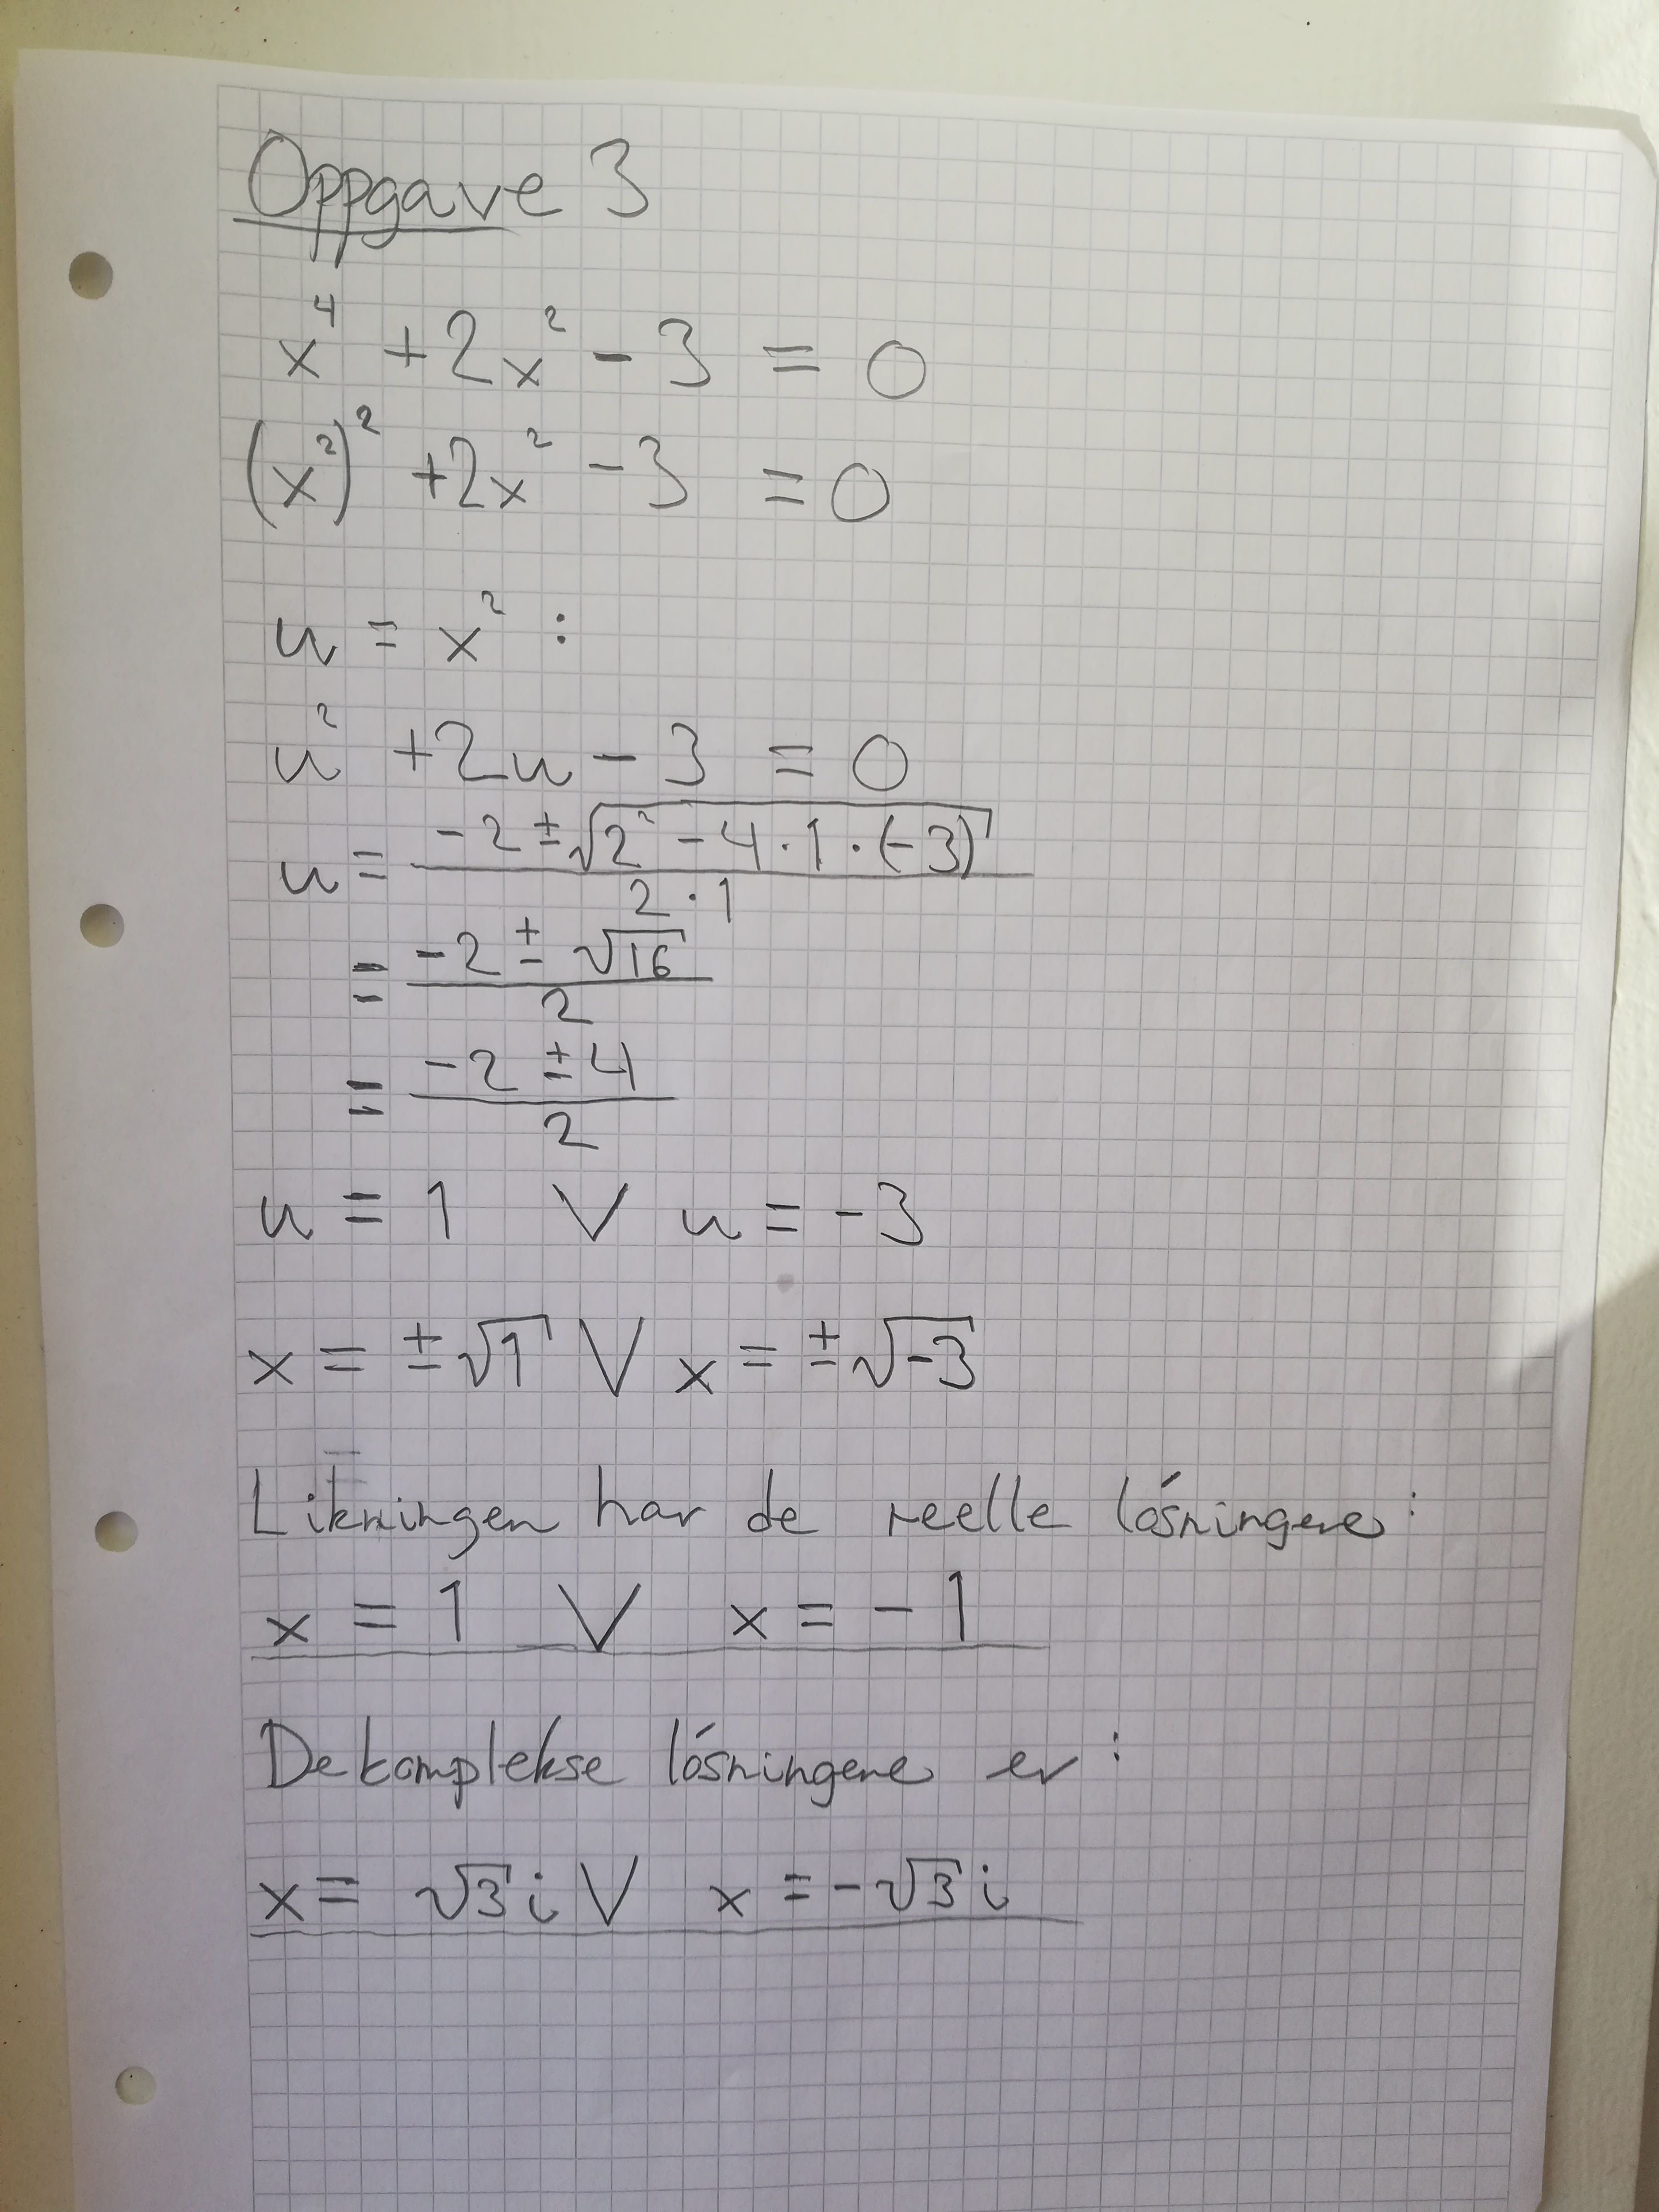 Oppgave 3
x⁴ + 2x² - 3 = 0
(x²)² + 2x² - 3 = 0
u = x² :
u² + 2u - 3 = 0
u = (-2 ± √(2² - 4 · 1 · (-3))) / (2 · 1)
= (-2 ± √16) / 2
= (-2 ± 4) / 2
u = 1 V u = -3
x = ± √1 V x = ± √-3
Likningen har de reelle løsningene:
x = 1 V x = - 1
De komplekse løsningene er:
x = √3 i V x = - √3 i